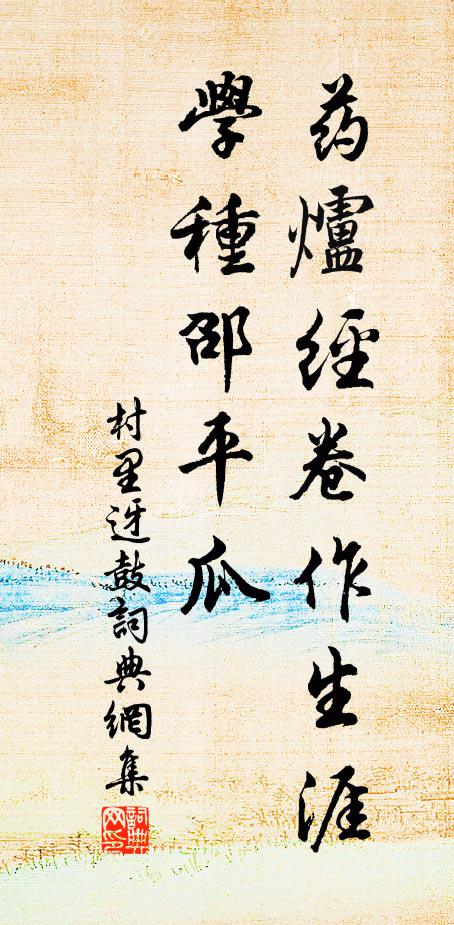 药爐經卷作生涯
學種邵平瓜
村里迓鼓詞典網集
詞典網印